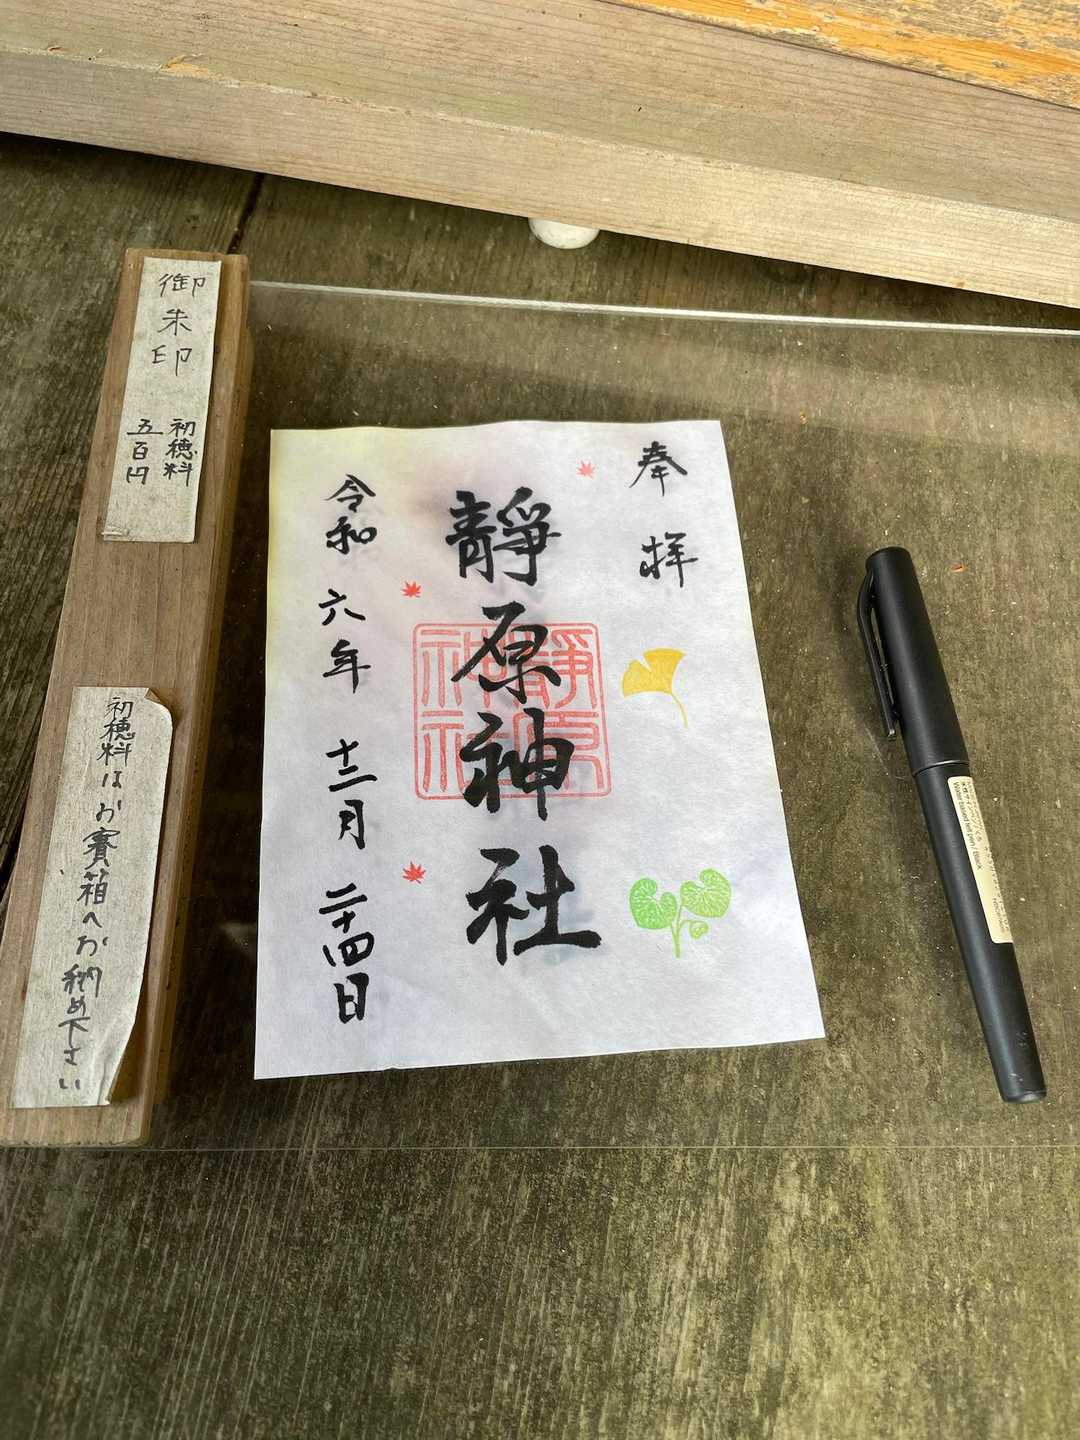 奉拝
靜原神社
令和六年十二月二十四日
靜原
神社
御朱印
初穂料
五百円
初穂料はお賽箱へお納め下さい
Water-based felt pen / Black